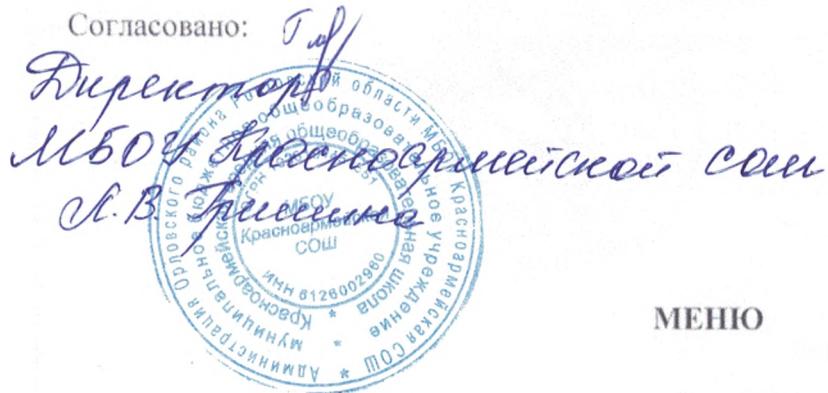 Согласовано:
Директор
МБОУ Красноармейской сош
Л.В. Гришина
Администрация Орловского района Ростовской области МБОУ Красноармейская СОШ
муниципальное бюджетное общеобразовательное учреждение
Красноармейская средняя общеобразовательная школа
ИНН 6126002960
МБОУ
Красноармейская
СОШ
МЕНЮ